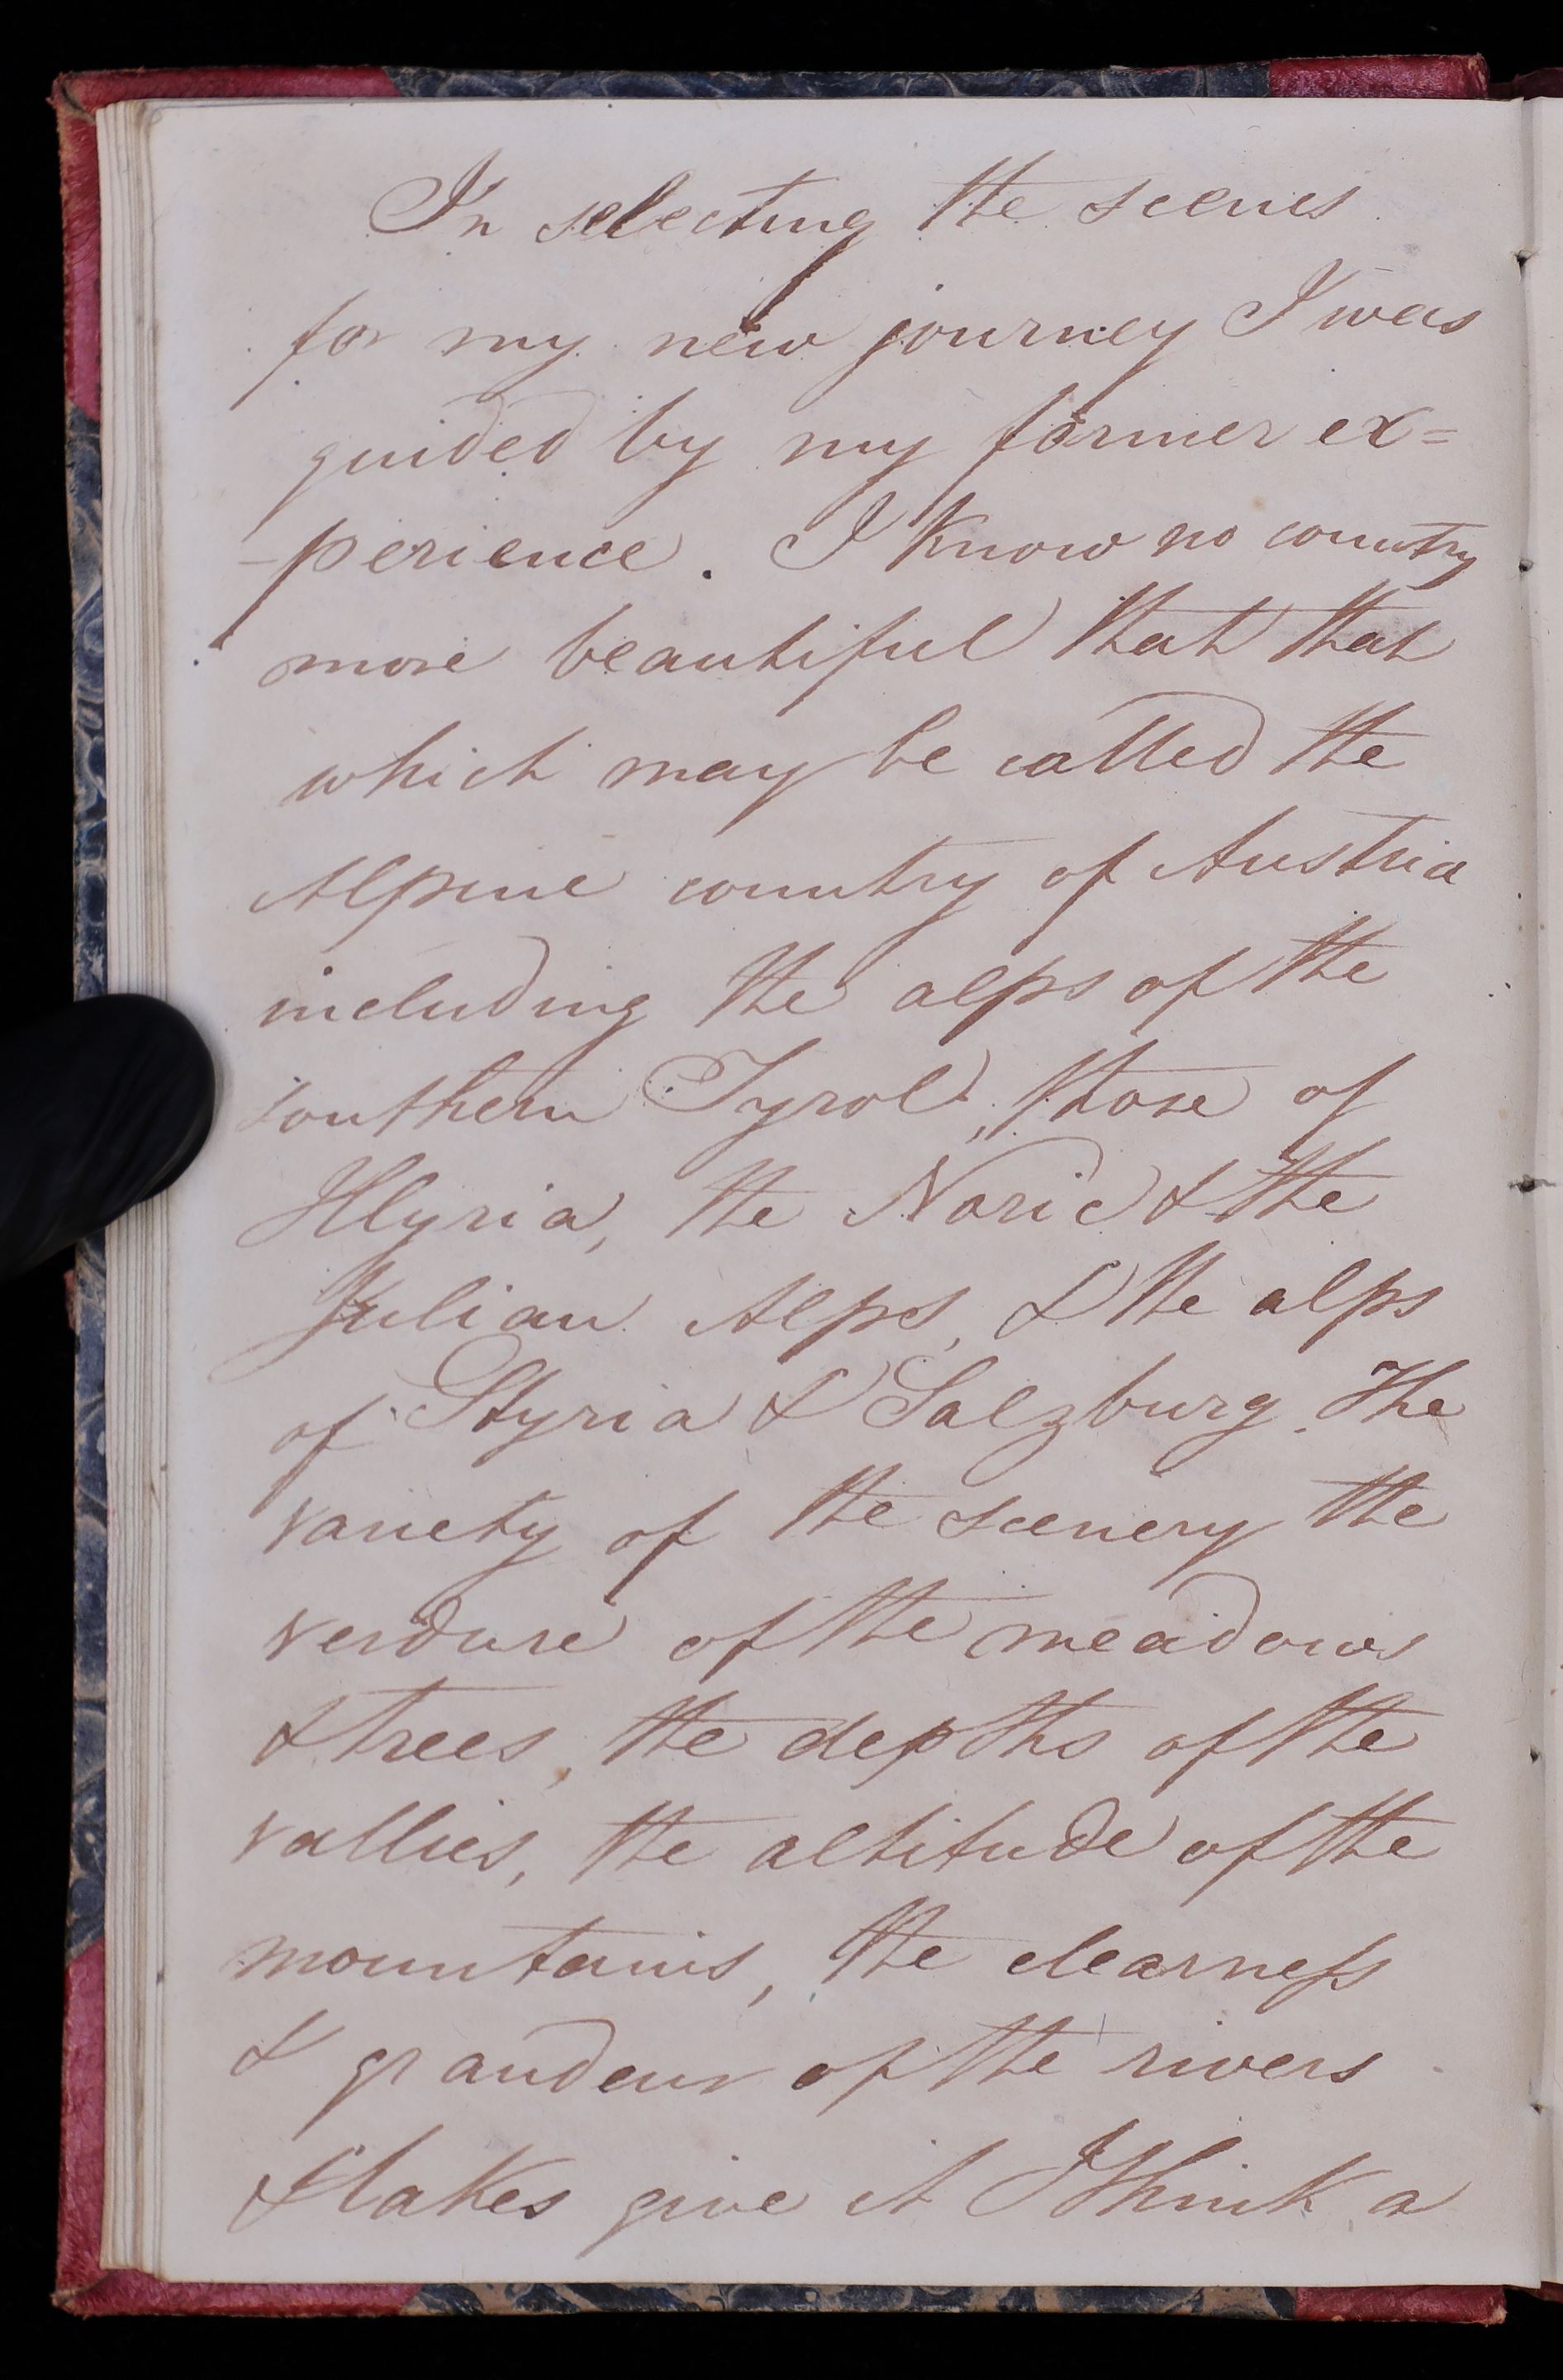 In selecting the scenes
for my new journey I was
guided by my former ex=
-perience. I know no country
more beautiful that that
which may be called the
Alpine country of Austria
including the alps of the
southern Tyrol, those of
Illyria, the Noric & the
Julian Alps, & the alps
of Styria & Salzburg. The
variety of the scenery the
verdure of the meadows
& trees, the depths of the
vallies, the altitude of the
mountains, the clearness
& grandeur of the rivers
& lakes give it I think a